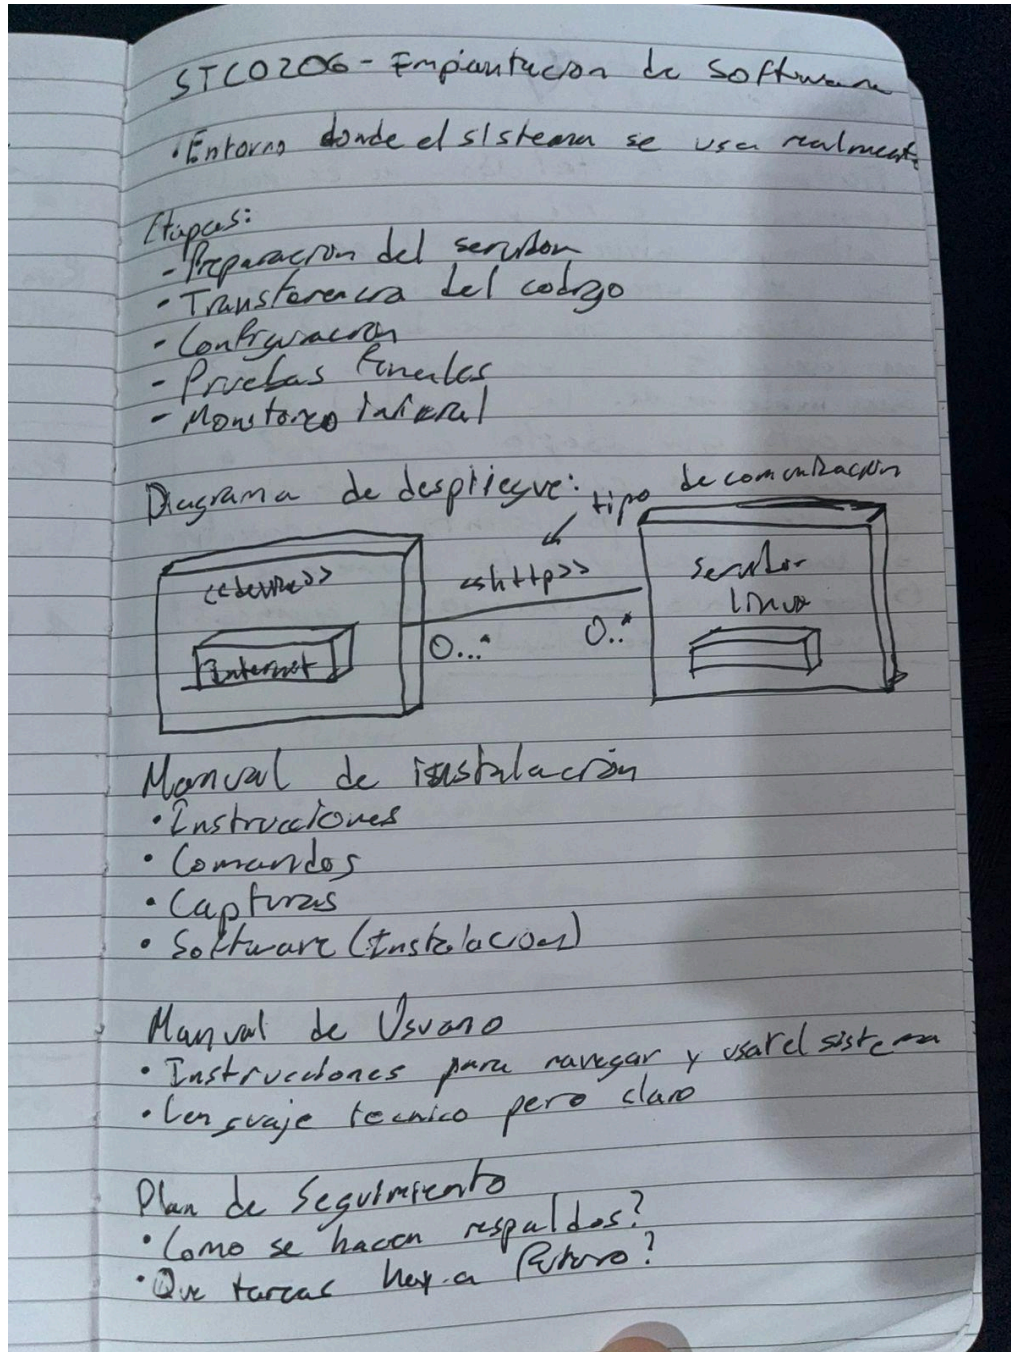 STC0206 - Empiantacion de Software
• Entorno donde el sistema se usa realmente
Etapas:
- Preparacion del servidor
- Transferencia del codigo
- Configuracion
- Pruebas finales
- Monitoreo inicial
Diagrama de despliegue: tipo de comunicación
<<device>>
<<http>>
Servidor
linux
Internet
0...*
0..*
Manual de instalación
• Instrucciones
• Comandos
• Capturas
• Software (Instalacion)
Manual de Usuario
• Instrucciones para navegar y usar el sistema
• Lenguaje tecnico pero claro
Plan de Seguimiento
• Como se hacen respaldos?
• Que tareas hay a futuro?